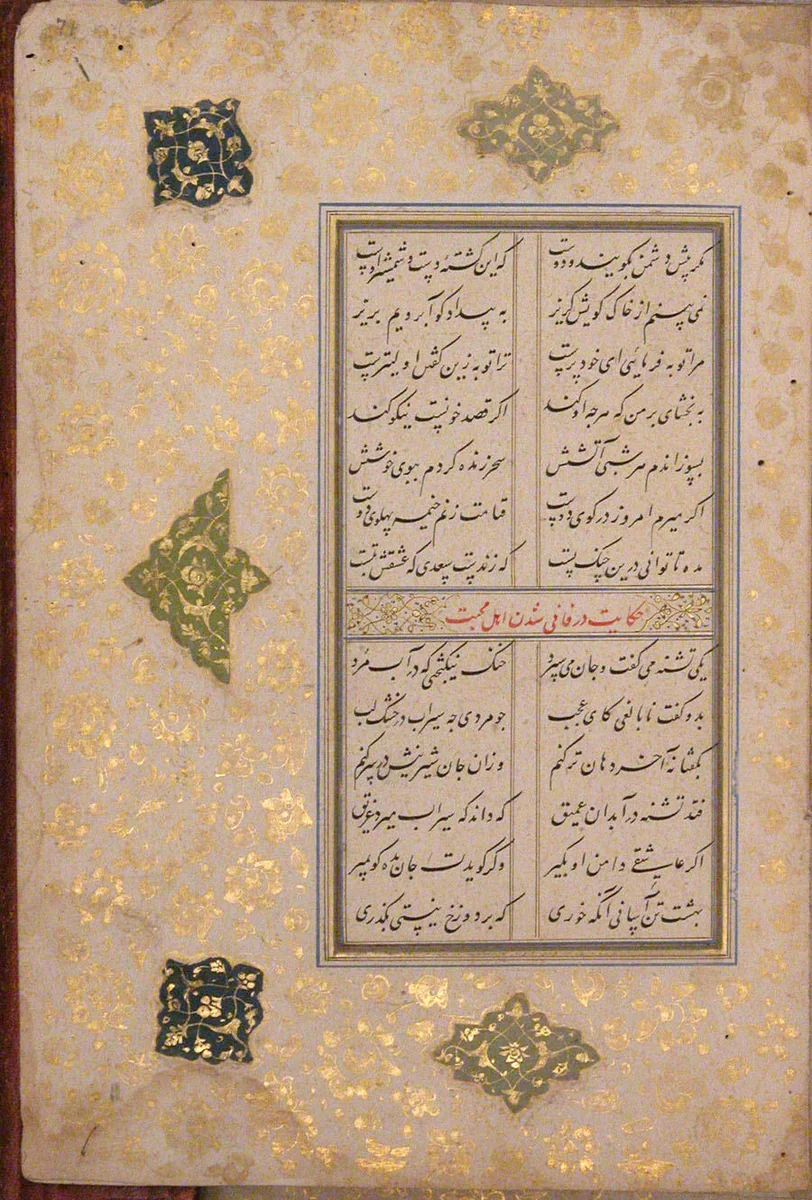 71
مگر پیش دشمن بگویند و دوست که این کشتهٔ دست و شمشیر اوست
نمی بینم از خاک کویش گریز به بیداد گو آبرویم بریز
مرا توبه فرمایی ای خود پرست ترا توبه زین گفتن اولیترست
به بخشای بر من که هرچه او کند اگر قصد خونست نیکو کند
بسوزاندم هر شبی آتشش سحر زنده گردم ببوی خوشش
اگر میرم امروز در کوی دوست قیامت زنم خیمه پهلوی دوست
مده تا توانی درین جنگ پشت که زندست سعدی که عشقش
حکایت در فانی شدن اهل محبت
یکی تشنه می گفت و جان می سپرد خنک نیکبختی که در آب مرد
بدو گفت نابالغی کای عجب چو مردی چه سیراب و خشک لب
بگفتا نه آخر دهان تر کنم وزان جان شیرینش در سر کنم
فتد تشنه در آبدان عمیق که داند که سیراب میرد غریق
اگر عاشقی دامن او بگیر وگر گویدت جان بده گو بمیر
بهشت تن آسانی آنگه خوری که بر دوزخ نیستی بگذری